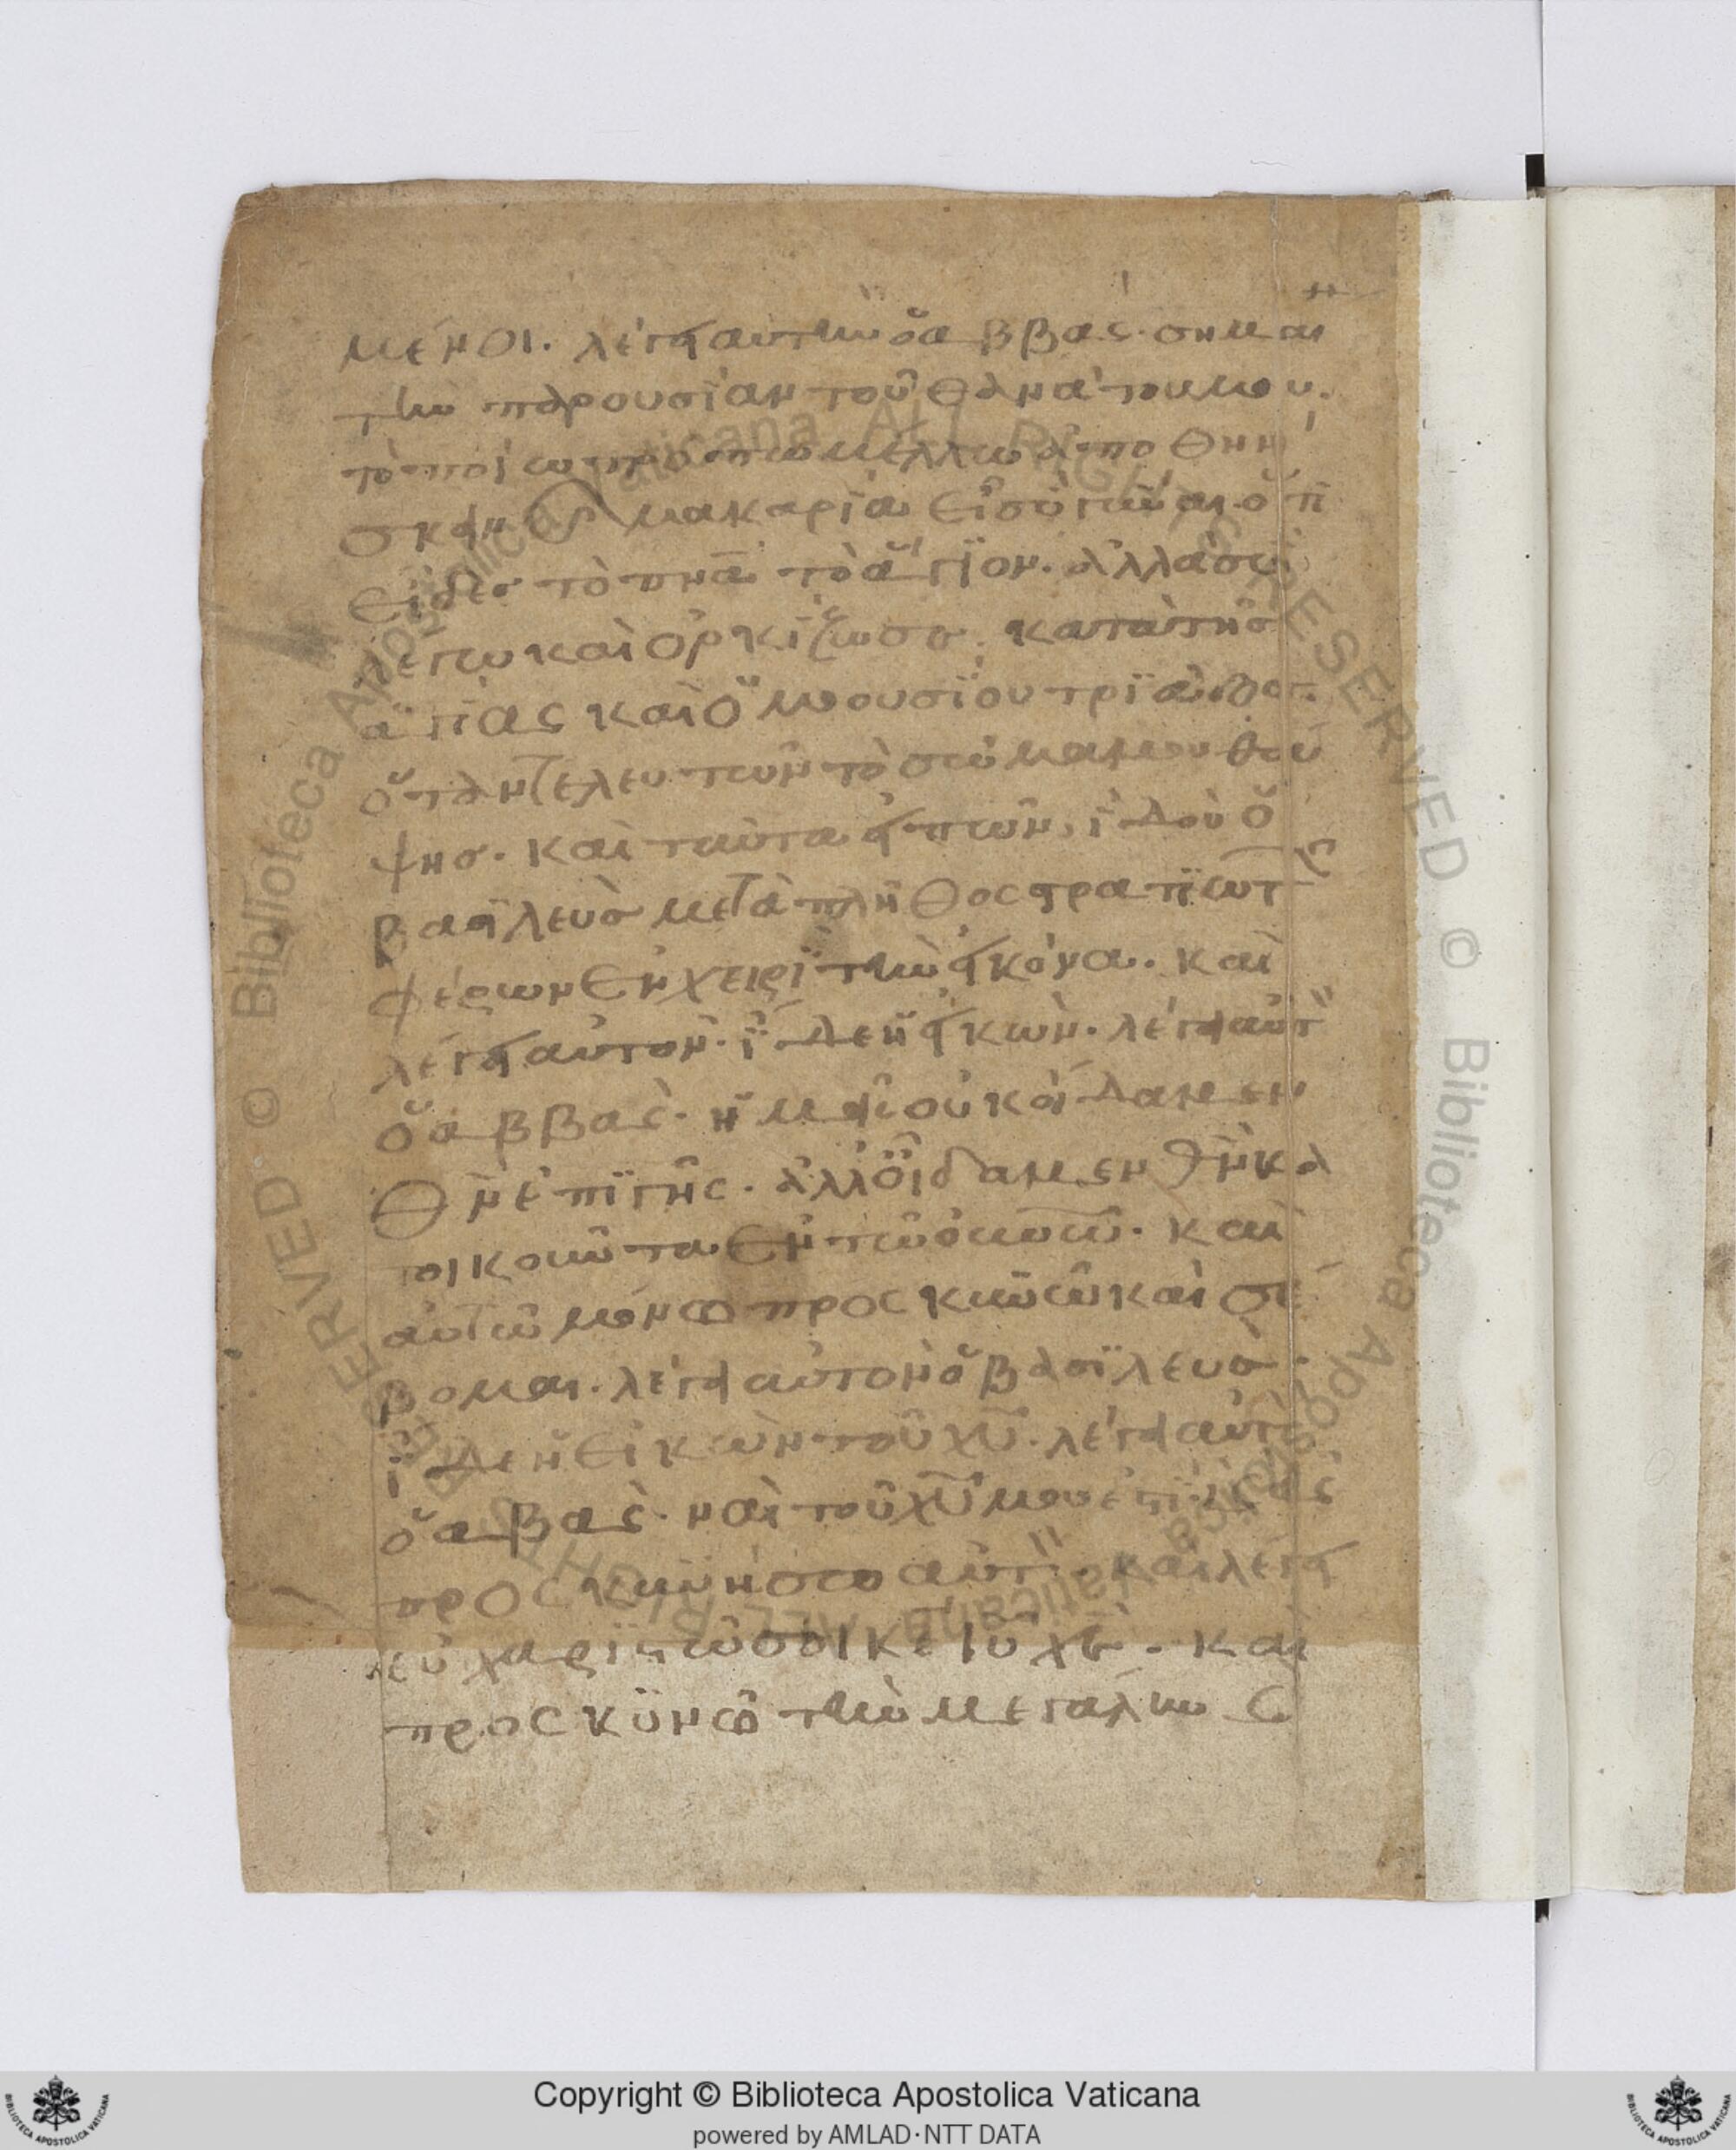 μένοι. λέγει αυτὴν ὁ αββας. σημαι
τὴν παρουσίαν τοῦ θανάτου μου.
τὸ ποίω τρόπω μέλλω ἀποθνή
σκειν μακαρία εἶ σὺ γύναι. ὅτι
εἶδες τὸ πνα τὸ ἅγϊον. ἀλλά σοι
λέγω και ὁρκίζω σε. κατὰ τῆσ
ἁγίας και ὁμοουσϊου τρϊάδος.
ὅταν τελευτων τὸ σῶμα μου θά
ψησ. και ταῦτα ειπων, ἰδοὺ ὁ
βασιλεὺσ μετὰ πλῆθος στρατϊωτ
φέρων ἐν χειρὶ τὴν εικόνα. και
λέγει αυτον. ἴδε ἡ εικων. λέγει αυτ
ὁ αββας. ἡμεῖς οὐκ οίδαμεν
θν ἐπι γῆς. ἀλλ οἴδαμεν θν κα
τοικουντα ἐν τω ουνω. και
αυτω μόνω προσκυνω και σέ
βομαι. λέγει αυτον ὁ βασϊλευσ.
ἴδε ἡ εἰκων τοῦ χυ. λέγει αυτ
ὁ αβας. ναι τοῦ χυ μου ἐστι
προσκυνήσω αυτ. και λέγει
εὐχαριστῶ σοι κε ιυ χε. και
προσκϋνῶ τὴν μεγάλην σ
Copyright © Biblioteca Apostolica Vaticana
powered by AMLAD·NTT DATA